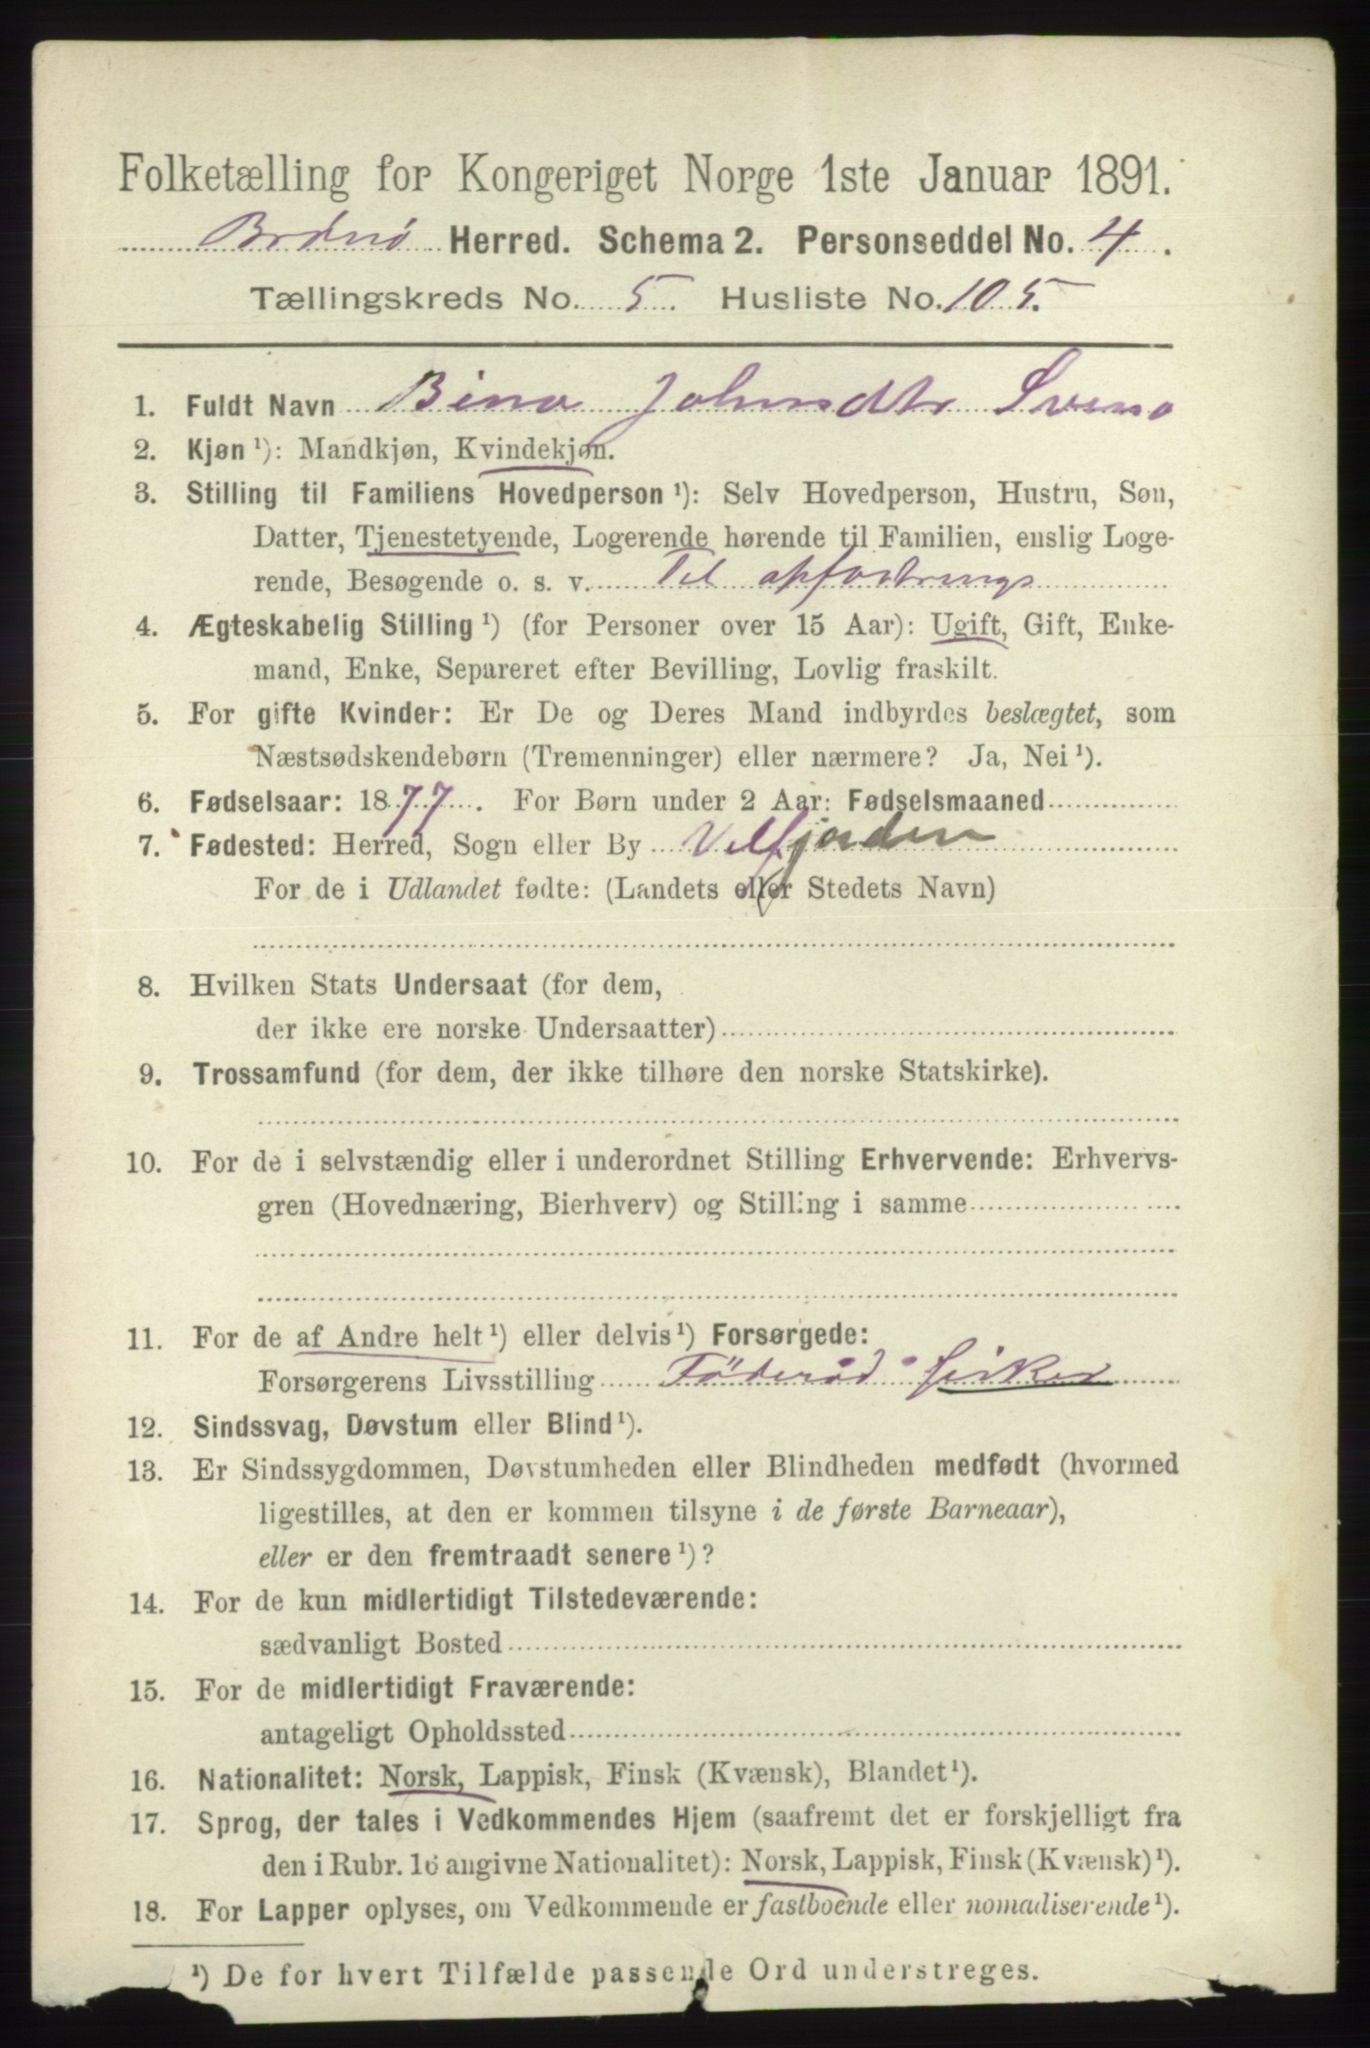 Folketælling for Kongeriget Norge 1ste Januar 1891.
Brønø Herred. Schema 2. Personseddel No. 4.
Tællingskreds No. 5. Husliste No. 105.
1. Fuldt Navn Bina
2. Kjøn ¹): Mandkjøn, Kvindekjøn.
3. Stilling til Familiens Hovedperson ¹): Selv Hovedperson, Hustru, Søn,
Datter, Tjenestetyende, Logerende hørende til Familien, enslig Loge-
rende, Besøgende o. s. v. Til opfostrings
4. Ægteskabelig Stilling ¹) (for Personer over 15 Aar): Ugift, Gift, Enke-
mand, Enke, Separeret efter Bevilling, Lovlig fraskilt.
5. For gifte Kvinder: Er De og Deres Mand indbyrdes beslægtet, som
Næstsødskendebørn (Tremenninger) eller nærmere? Ja, Nei ¹).
6. Fødselsaar: 1877. For Børn under 2 Aar: Fødselsmaaned
7. Fødested: Herred, Sogn eller By Velfjorden
For de i Udlandet fødte: (Landets eller Stedets Navn)
8. Hvilken Stats Undersaat (for dem,
der ikke ere norske Undersaatter)
9. Trossamfund (for dem, der ikke tilhøre den norske Statskirke).
10. For de i selvstændig eller i underordnet Stilling Erhvervende: Erhvervs-
gren (Hovednæring, Bierhverv) og Stilling i samme
11. For de af Andre helt ¹) eller delvis ¹) Forsørgede:
Forsørgerens Livsstilling Föderåd fisker
12. Sindssvag, Døvstum eller Blind ¹).
13. Er Sindssygdommen, Døvstumheden eller Blindheden medfødt (hvormed
ligestilles, at den er kommen tilsyne i de første Barneaar),
eller er den fremtraadt senere ¹)?
14. For de kun midlertidigt Tilstedeværende:
sædvanligt Bosted
15. For de midlertidigt Fraværende:
antageligt Opholdssted
16. Nationalitet: Norsk, Lappisk, Finsk (Kvænsk), Blandet ¹).
17. Sprog, der tales i Vedkommendes Hjem (saafremt det er forskjelligt fra
den i Rubr. 16 angivne Nationalitet): Norsk, Lappisk, Finsk (Kvænsk) ¹).
18. For Lapper oplyses, om Vedkommende er fastboende eller nomadiserende ¹).
¹) De for hvert Tilfælde passende Ord understreges.